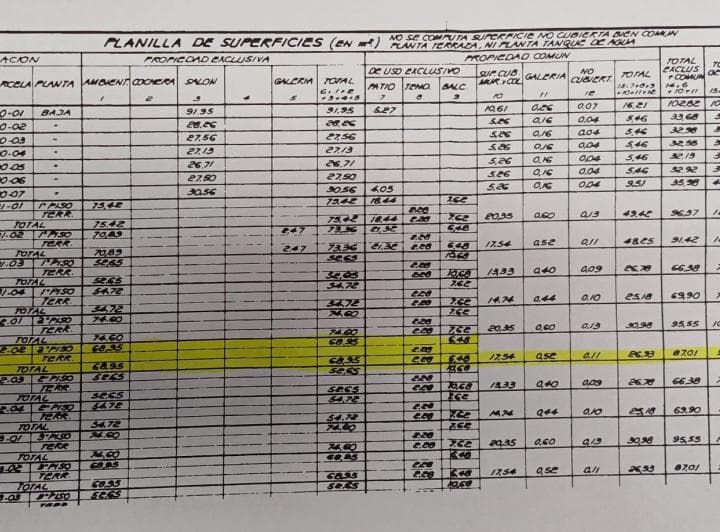 PLANILLA DE SUPERFICIES (EN m²) NO SE COMPUTA SUPERFICIE NO CUBIERTA BIEN COMUN
PLANTA TERRAZA, NI PLANTA TANQUE DE AGUA
ACION PROPIEDAD EXCLUSIVA PROPIEDAD COMUN TOTAL
RCELA PLANTA AMBIENT. COCHERA SALON GALERIA TOTAL DE USO EXCLUSIVO SUP. CUB. MUR. Y COL. GALERIA NO CUBIERT. TOTAL EXCLUS + COMUN
PATIO TEND. BALC.
1 2 3 4 5 7 8 9 10 11 12
0-01 BAJA 91,95 91,95 5,27 10,61 0,26 0,07 16,21 102,82
0-02 " 28,26 28,26 5,26 0,16 0,04 5,46 33,68
0-03 " 27,56 27,56 5,26 0,16 0,04 5,46 32,98
0-04 " 27,13 27,13 5,26 0,16 0,04 5,46
0-05 " 26,71 26,71 5,26 0,16 0,04 5,46 32,13
0-06 " 27,50 27,50 5,26 0,16 0,04 5,46 32,92
0-07 " 30,56 30,56 4,05 5,26 0,16 0,04 9,51 35,98
1-01 1º PISO 75,42 75,42 18,44 7,62
TERR. 2,28
TOTAL 75,42 75,42 18,44 2,28 7,62 20,35 0,60 0,13 49,42 96,37
1-02 1º PISO 70,89 2,47 73,36 21,32 6,48
TERR. 2,28
TOTAL 70,89 2,47 73,36 21,32 2,28 6,48 17,54 0,52 0,11 48,25 91,42
1-03 1º PISO 52,65 52,65 10,68
TERR. 2,28
TOTAL 52,65 52,65 2,28 10,68 13,33 0,40 0,09 26,78 66,38
1-04 1º PISO 54,72 54,72 7,62
TERR. 2,28
TOTAL 54,72 54,72 2,28 7,62 14,74 0,44 0,10 25,18 69,90
2-01 2º PISO 74,60 74,60 7,62
TERR. 2,28
TOTAL 74,60 74,60 2,28 7,62 20,35 0,60 0,13 30,98 95,55
2-02 2º PISO 68,95 68,95 6,48
TERR. 2,28
TOTAL 68,95 68,95 2,28 6,48 17,54 0,52 0,11 26,93 87,01
2-03 2º PISO 52,65 52,65 10,68
TERR. 2,28
TOTAL 52,65 52,65 2,28 10,68 13,33 0,40 0,09 26,78 66,38
2-04 2º PISO 54,72 54,72 7,62
TERR. 2,28
TOTAL 54,72 54,72 2,28 7,62 14,74 0,44 0,10 25,18 69,90
3-01 3º PISO 74,60 74,60 7,62
TERR. 2,28
TOTAL 74,60 74,60 2,28 7,62 20,35 0,60 0,13 30,98 95,55
3-02 3º PISO 68,95 68,95 6,48
TERR. 2,28
TOTAL 68,95 68,95 2,28 6,48 17,54 0,52 0,11 26,93 87,01
3-03 3º PISO 52,65 52,65 10,68
TERR.